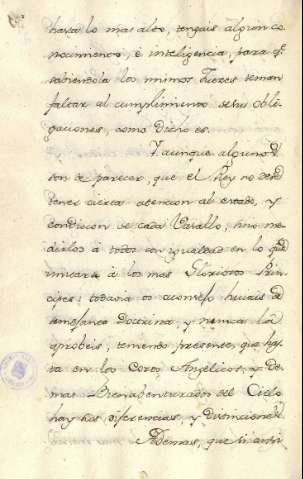 hasta lo mas alto, tengais algun co-
nocimiento, è inteligencia, para qe.
sabiendola los mismos Jueces teman
faltar al cumplimiento de sus obli-
gaciones, como dicho es.
Y aunque algunos
son de parecer, que el Rey no debe
tener cierta atencion al estado, y
condicion de cada Vasallo, sino me-
dirlos à todos con igualdad en lo que
à los mas Gloriosos Prin-
cipes; todavia os aconsejo huiais de
semejante Doctrina, y nunca la
aprobeis, teniendo presente, que has-
ta en los Coros Angelicos, y de-
mas Bienabenturados del Cielo
hay sus diferencias, y distinciones.
Ademas, que si assi